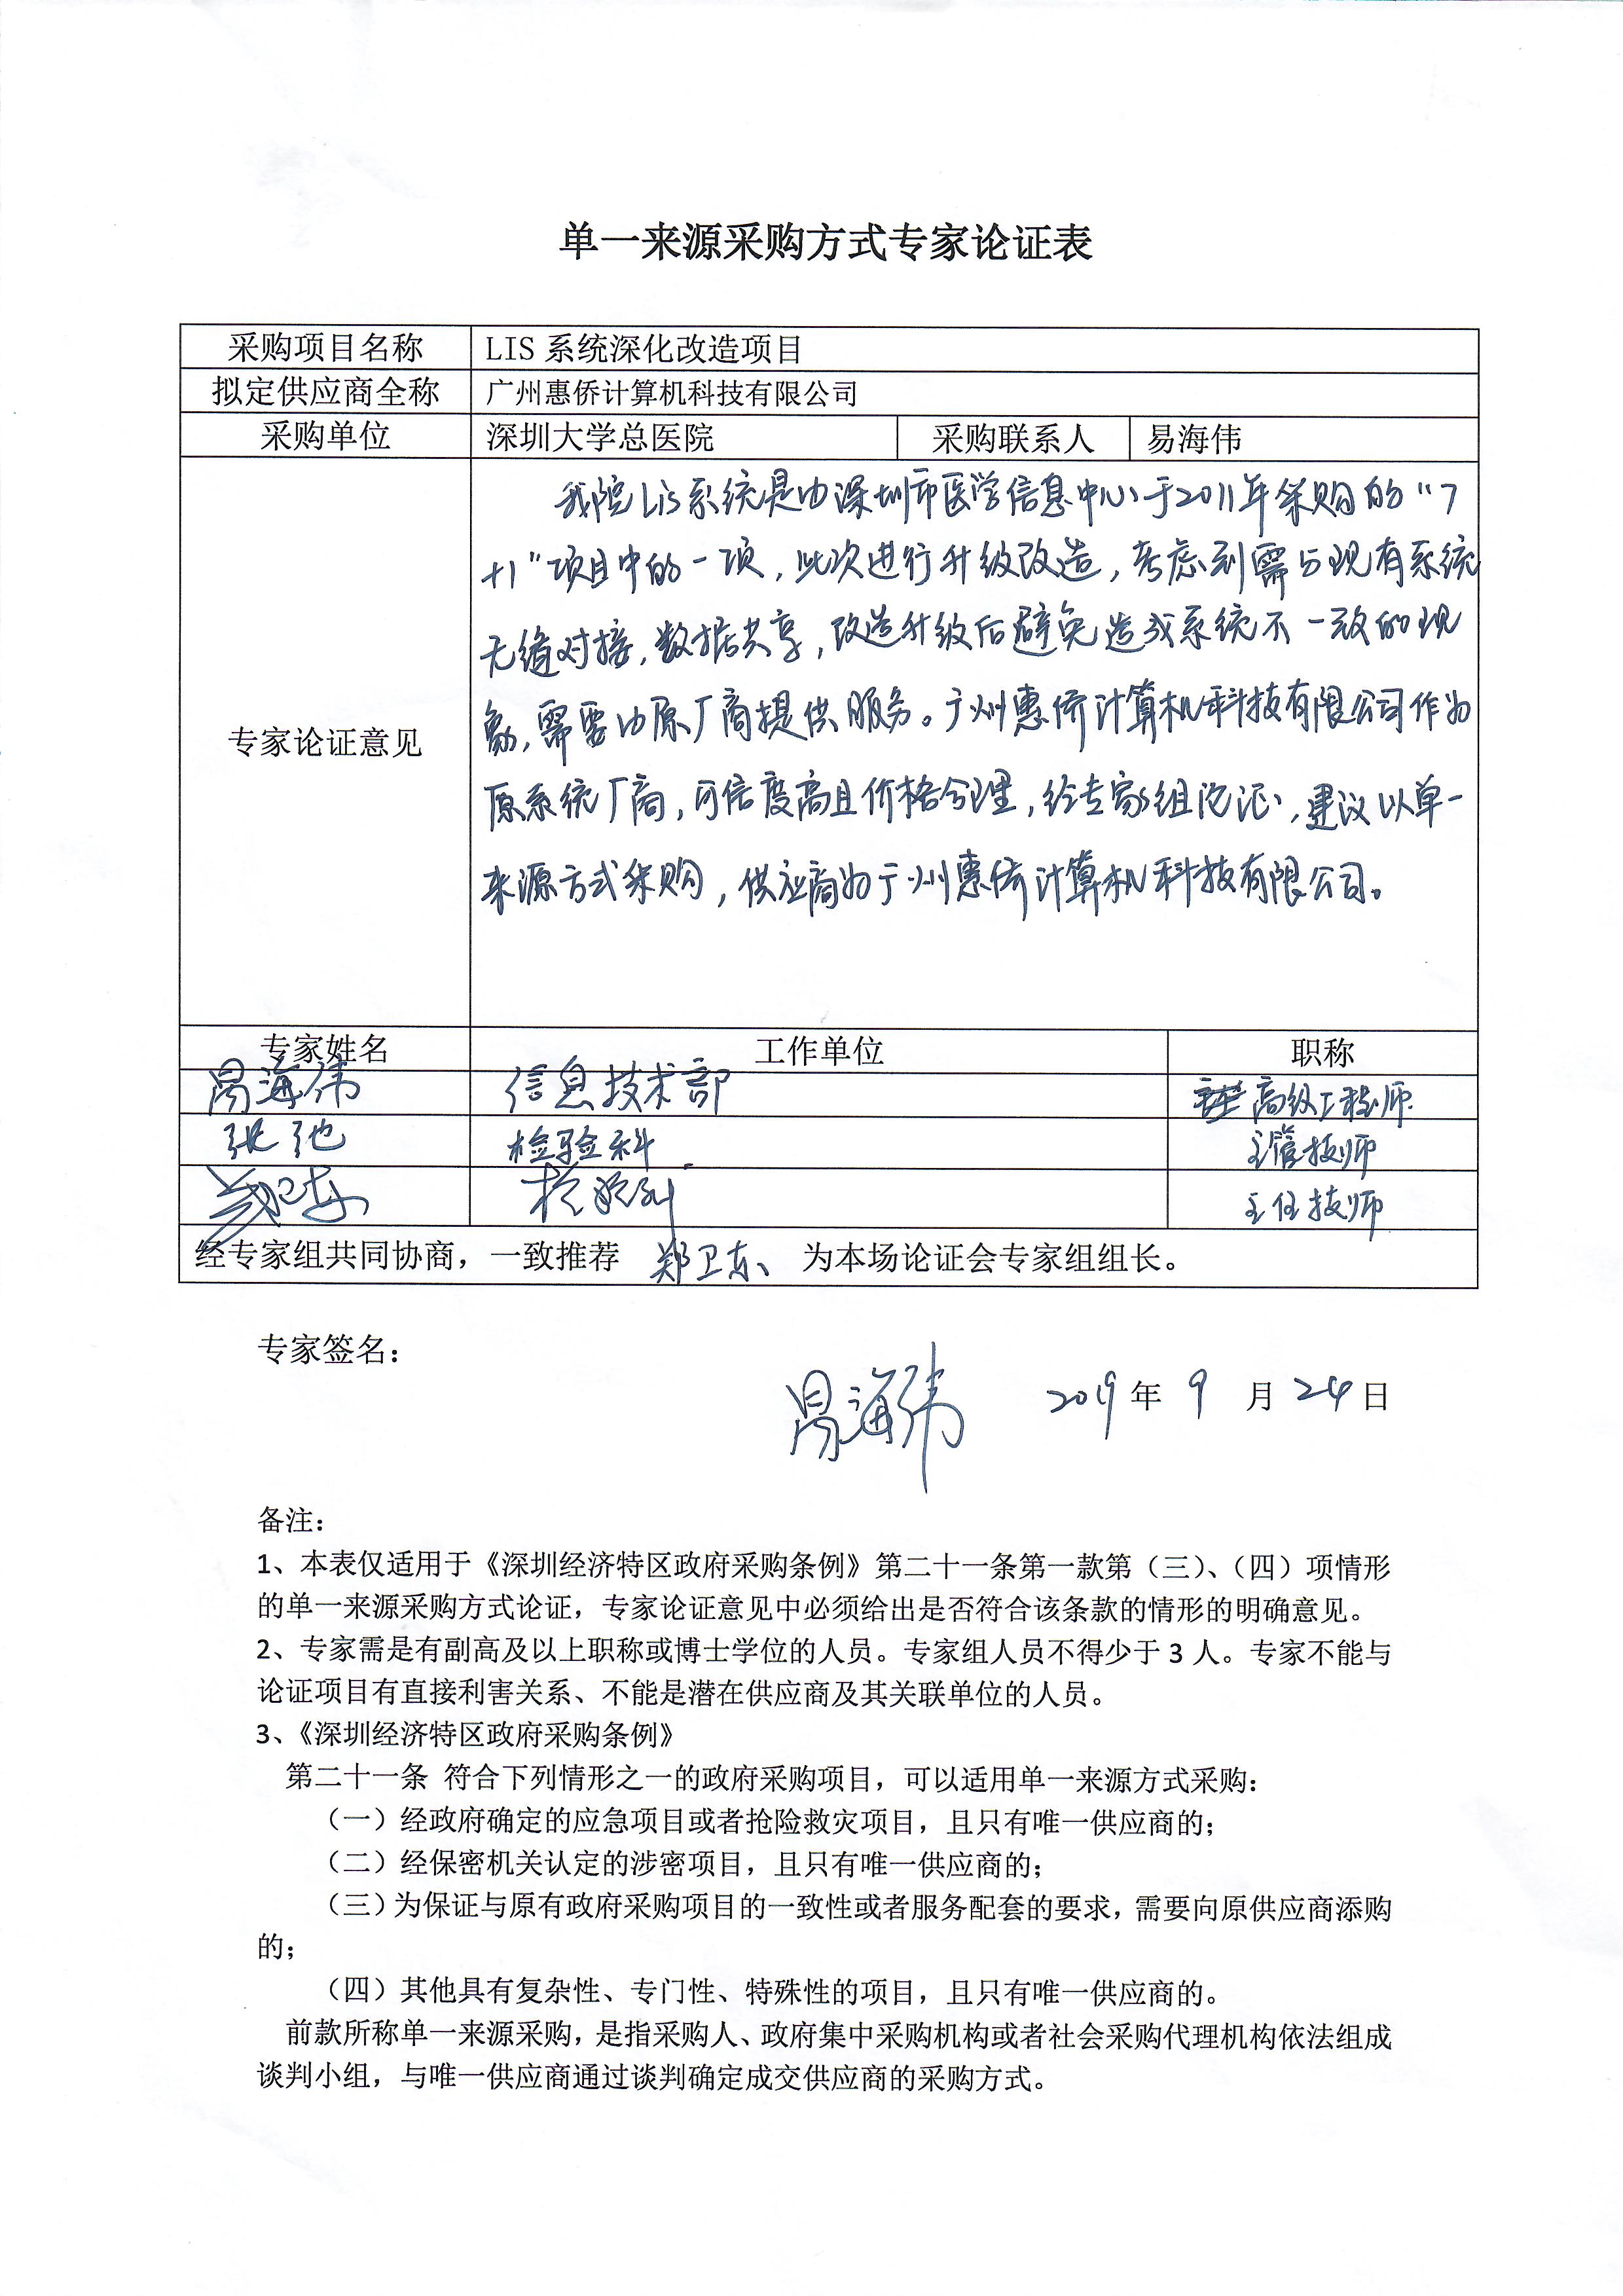 单一来源采购方式专家论证表
采购项目名称 LIS 系统深化改造项目
拟定供应商全称 广州惠侨计算机科技有限公司
采购单位 深圳大学总医院 采购联系人 易海伟
专家论证意见
我院Lis系统是由深圳市医学信息中心于2011年采购的“7
+1”项目中的一项，此次进行升级改造，考虑到需与现有系统
无缝对接，数据共享，改造升级后避免造成系统不一致的现
象，需要由原厂商提供服务。广州惠侨计算机科技有限公司作为
原系统厂商，可信度高且价格合理，经专家组论证，建议以单一
来源方式采购，供应商为广州惠侨计算机科技有限公司。
专家姓名 工作单位 职称
易海伟 信息技术部 高级工程师
张弛 检验科 主管技师
郑卫东 检验科 主任技师
经专家组共同协商，一致推荐 郑卫东 为本场论证会专家组组长。
专家签名：
易海伟 2019 年 9 月 24 日
备注：
1、本表仅适用于《深圳经济特区政府采购条例》第二十一条第一款第（三）、（四）项情形
的单一来源采购方式论证，专家论证意见中必须给出是否符合该条款的情形的明确意见。
2、专家需是有副高及以上职称或博士学位的人员。专家组人员不得少于 3 人。专家不能与
论证项目有直接利害关系、不能是潜在供应商及其关联单位的人员。
3、《深圳经济特区政府采购条例》
第二十一条 符合下列情形之一的政府采购项目，可以适用单一来源方式采购：
（一）经政府确定的应急项目或者抢险救灾项目，且只有唯一供应商的；
（二）经保密机关认定的涉密项目，且只有唯一供应商的；
（三）为保证与原有政府采购项目的一致性或者服务配套的要求，需要向原供应商添购
的；
（四）其他具有复杂性、专门性、特殊性的项目，且只有唯一供应商的。
前款所称单一来源采购，是指采购人、政府集中采购机构或者社会采购代理机构依法组成
谈判小组，与唯一供应商通过谈判确定成交供应商的采购方式。